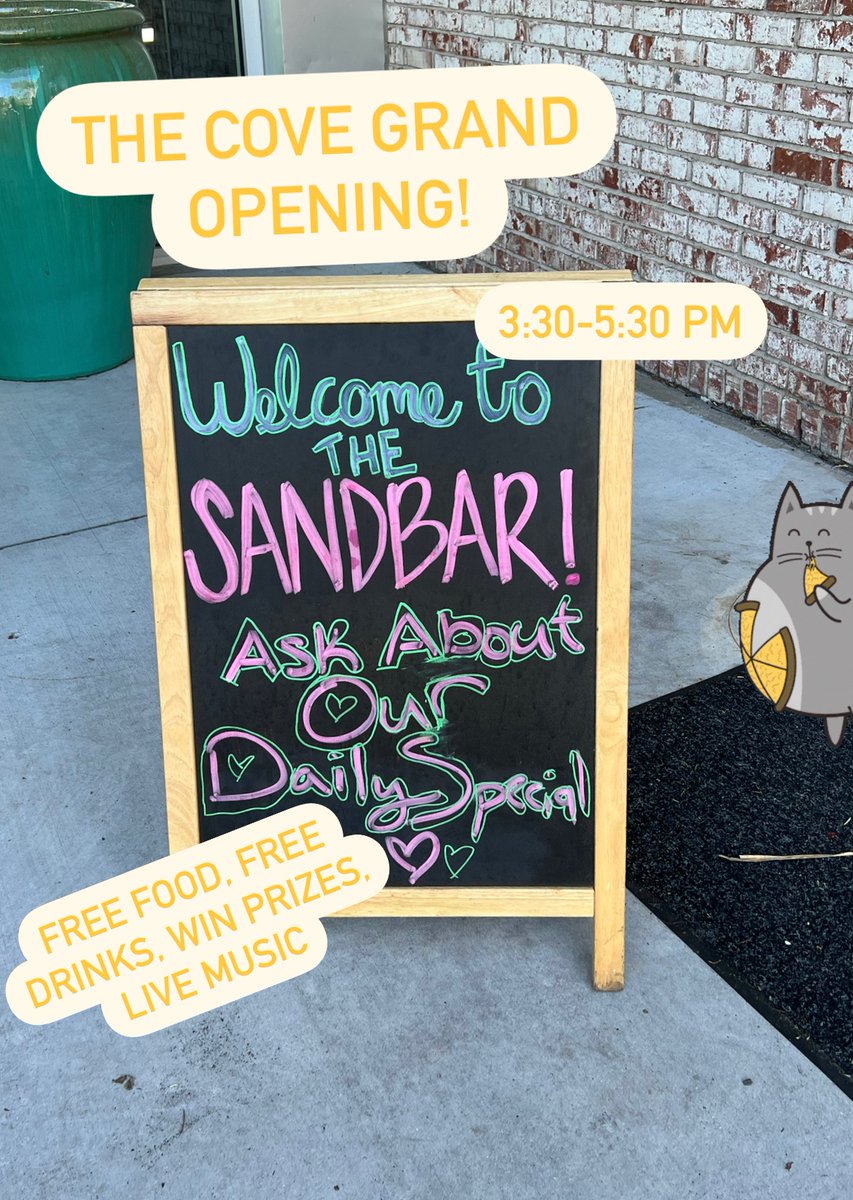 THE COVE GRAND
OPENING!
3:30-5:30 PM
Welcome to
THE
SANDBAR!
Ask About
Our
Daily Special
FREE FOOD, FREE
DRINKS, WIN PRIZES,
LIVE MUSIC